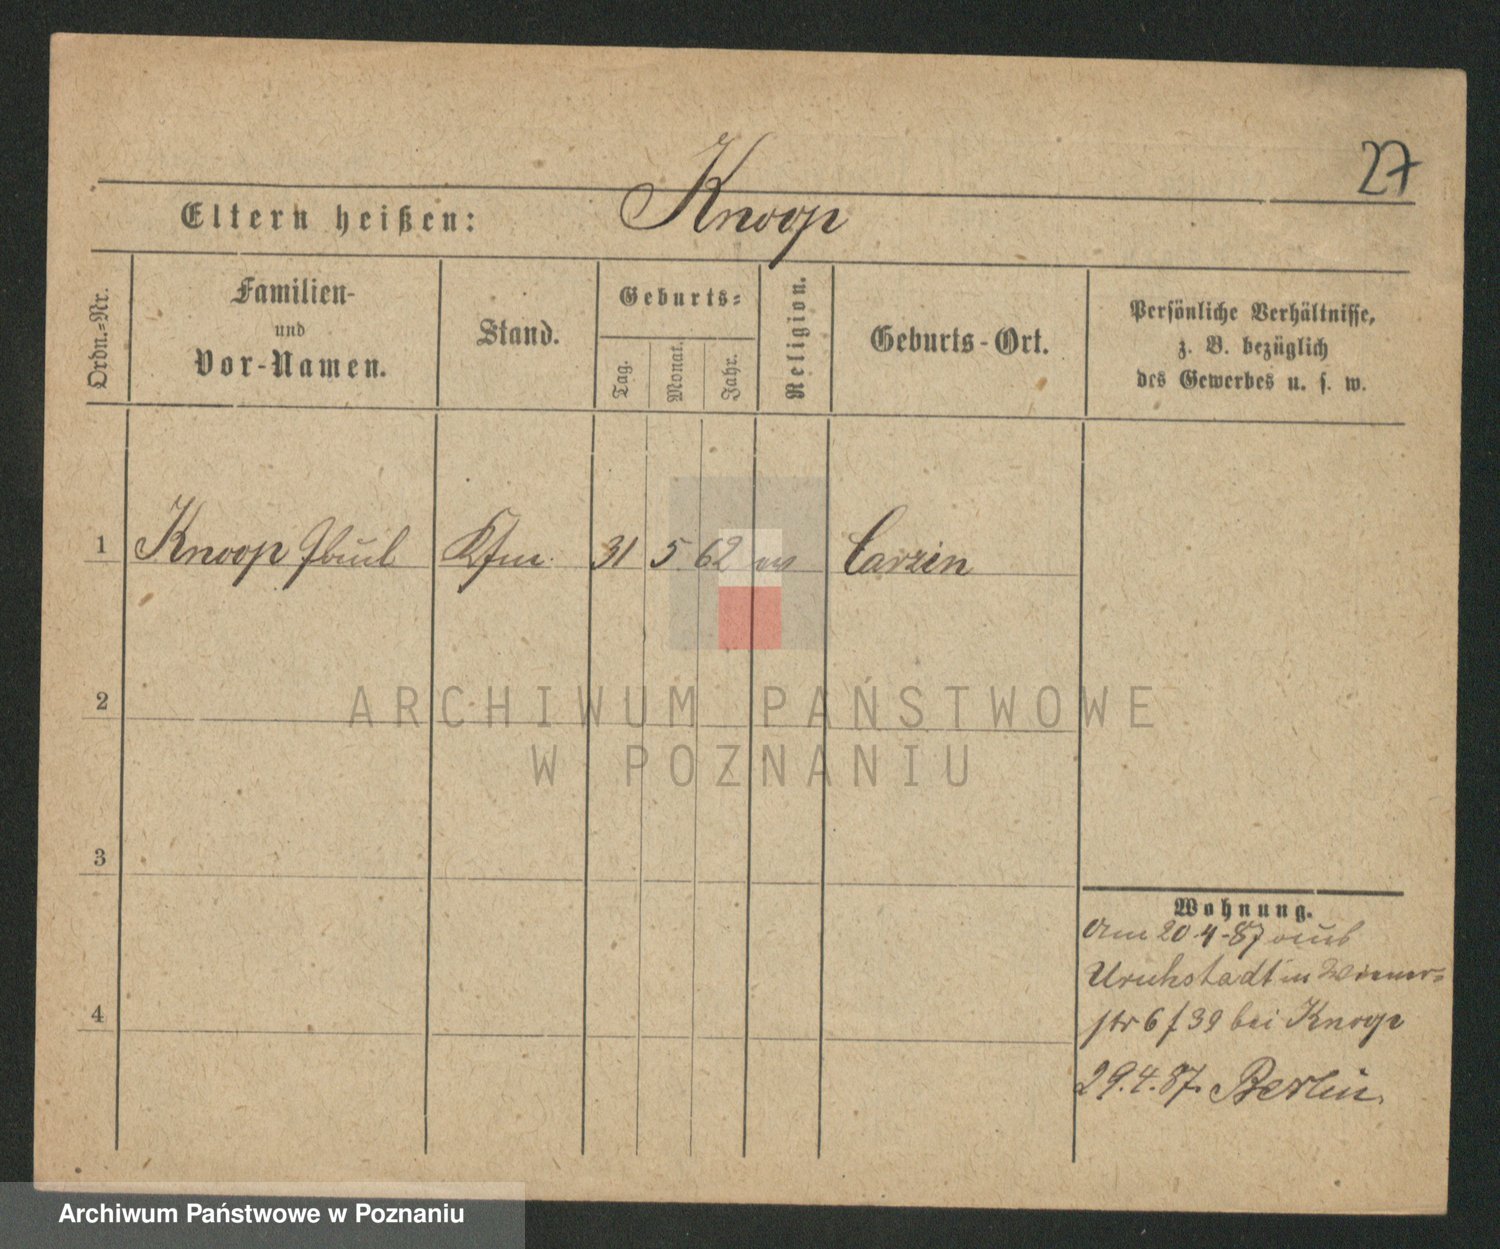 27
Eltern heißen: Knoop
Ordn.=Nr.
Familien-
und
Vor-Namen.
Stand.
Geburts=
Tag.
Monat.
Jahr.
Religion.
Geburts-Ort.
Persönliche Verhältnisse,
z. B. bezüglich
des Gewerbes u. s. w.
1 Knoop Paul Kfm. 31 5 62 ev Carzin
2
3
4
Wohnung.
Am 20.4.87 aus
in Wiener=
str 6 / 39 bei Knoop
29.4.87. Berlin.
ARCHIWUM PAŃSTWOWE
W POZNANIU
Archiwum Państwowe w Poznaniu